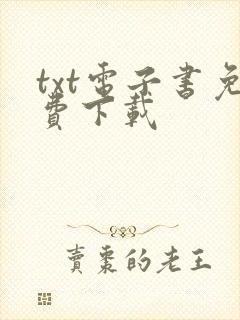 txt電子書免
費下載
賣棗的老王